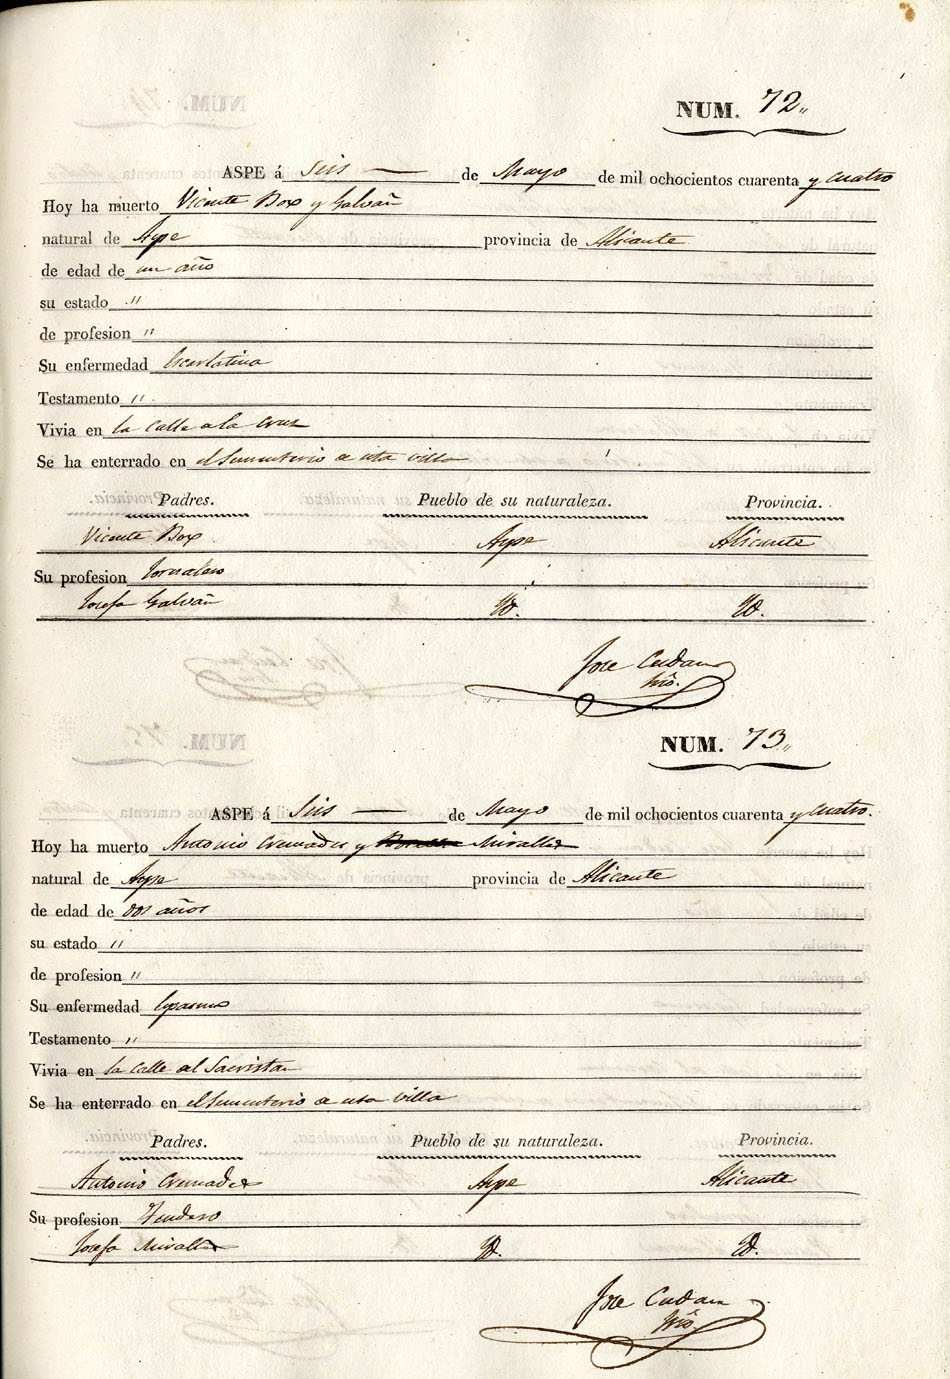 NUM. 72„
ASPE á Seis — de Mayo de mil ochocientos cuarenta y cuatro
Hoy ha muerto Vicente Box y Galvañ
natural de Aspe provincia de Alicante
de edad de un año
su estado „
de profesion „
Su enfermedad Escarlatina
Testamento „
Vivia en la calle de la Cruz
Se ha enterrado en el Sementerio de esta villa
Padres. Pueblo de su naturaleza. Provincia.
Vicente Box Aspe Alicante
Su profesion Jornalero
Josefa Galvañ Yd. Yd.
Jose
NUM. 73„
ASPE á Seis — de Mayo de mil ochocientos cuarenta y cuatro.
Hoy ha muerto Antonio Cremades y Miralles
natural de Aspe provincia de Alicante
de edad de dos años
su estado „
de profesion „
Su enfermedad Espasmo
Testamento „
Vivia en la calle del Sacristan
Se ha enterrado en el Sementerio de esta villa
Padres. Pueblo de su naturaleza. Provincia.
Antonio Cremades Aspe Alicante
Su profesion Tendero
Josefa Miralles Yd. Yd.
Jose